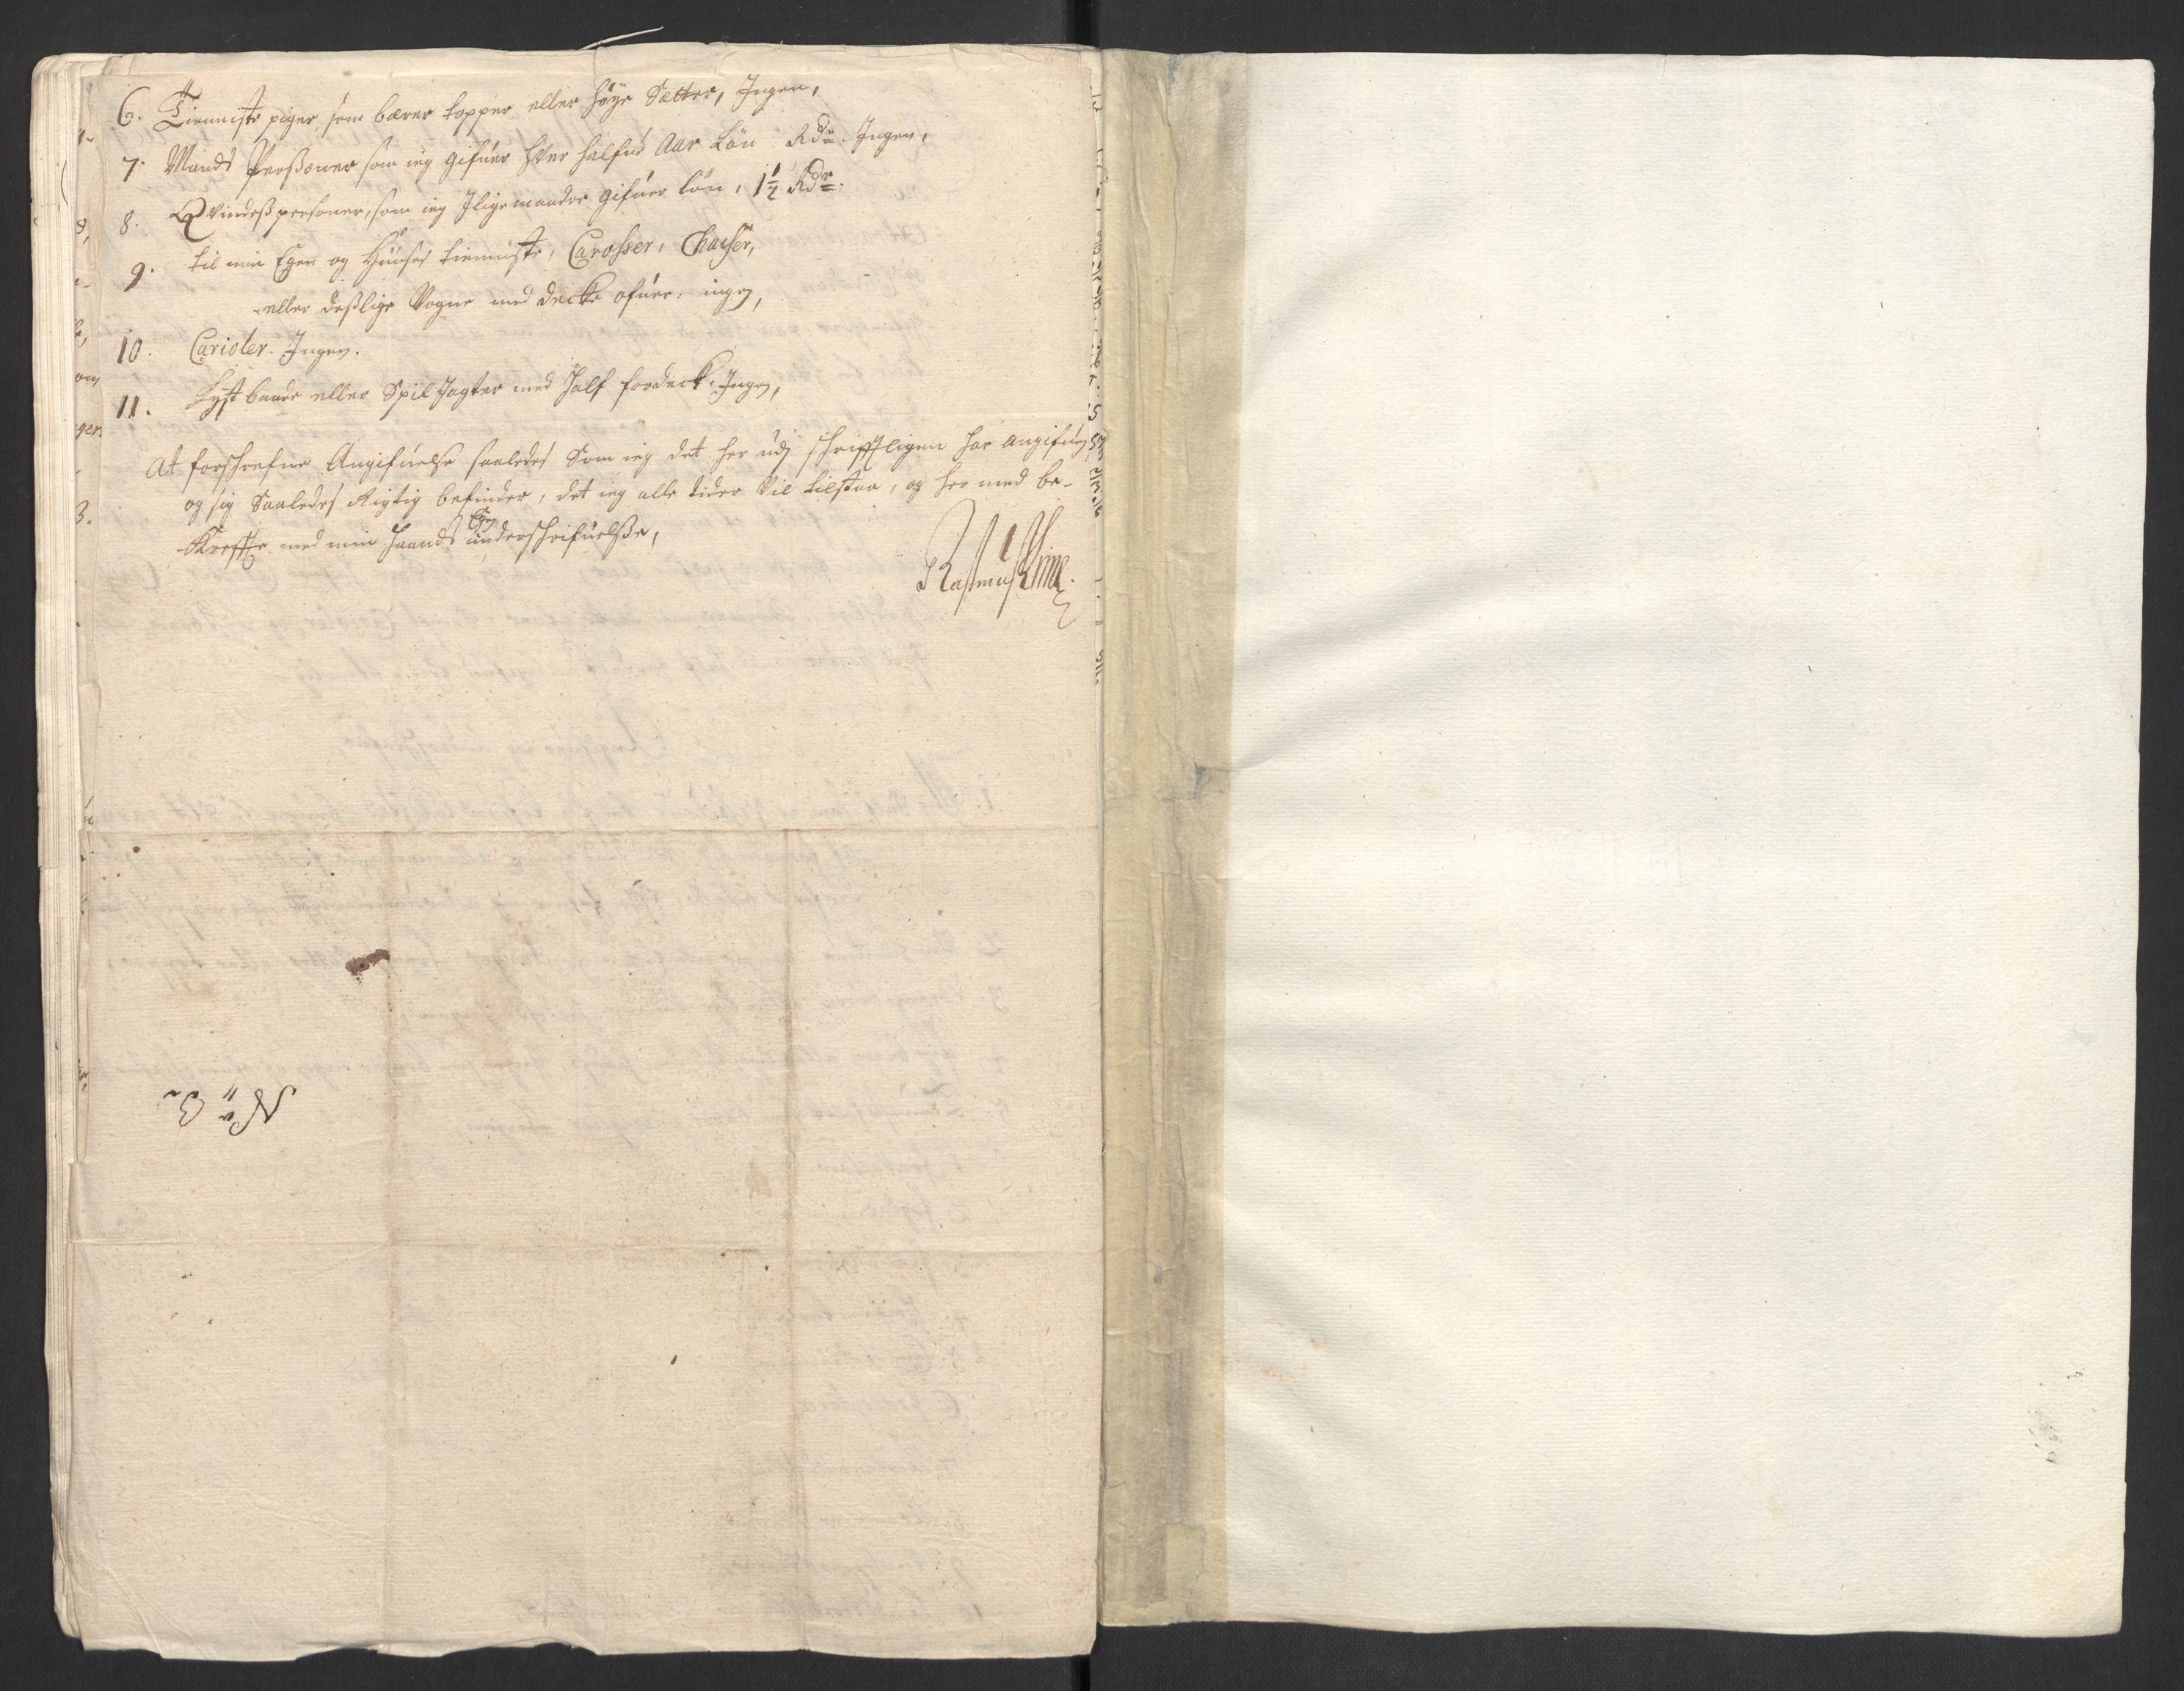 6. Tienniste piger, som bærer topper eller høye Sætter, Ingen,
7. Mands Persßoner som ieg gifuer hver halfue Aar Løn Rdr. Ingen,
8. Qvindeß personer, som ieg Iligemaader gifuer løn, 1½ Rdr.
9. til min Egen og Huuses tienniste, Carosser, Chaiser,
eller deßlige Vogne med decke ofuer: ingen,
10. Carioler. Ingen.
11. Lyst baade eller Spil Jagter med half fordeck. Ingen,
At forschrefne Angifuelse saaledes Som ieg det her udj schrifftligen har angifuen
og sig Saaledes Rigtig befinder, det ieg alle tider Vil tilstaa, og her med be-
Kreffte med min haands underschrifuelße,
Rasmus
No 3